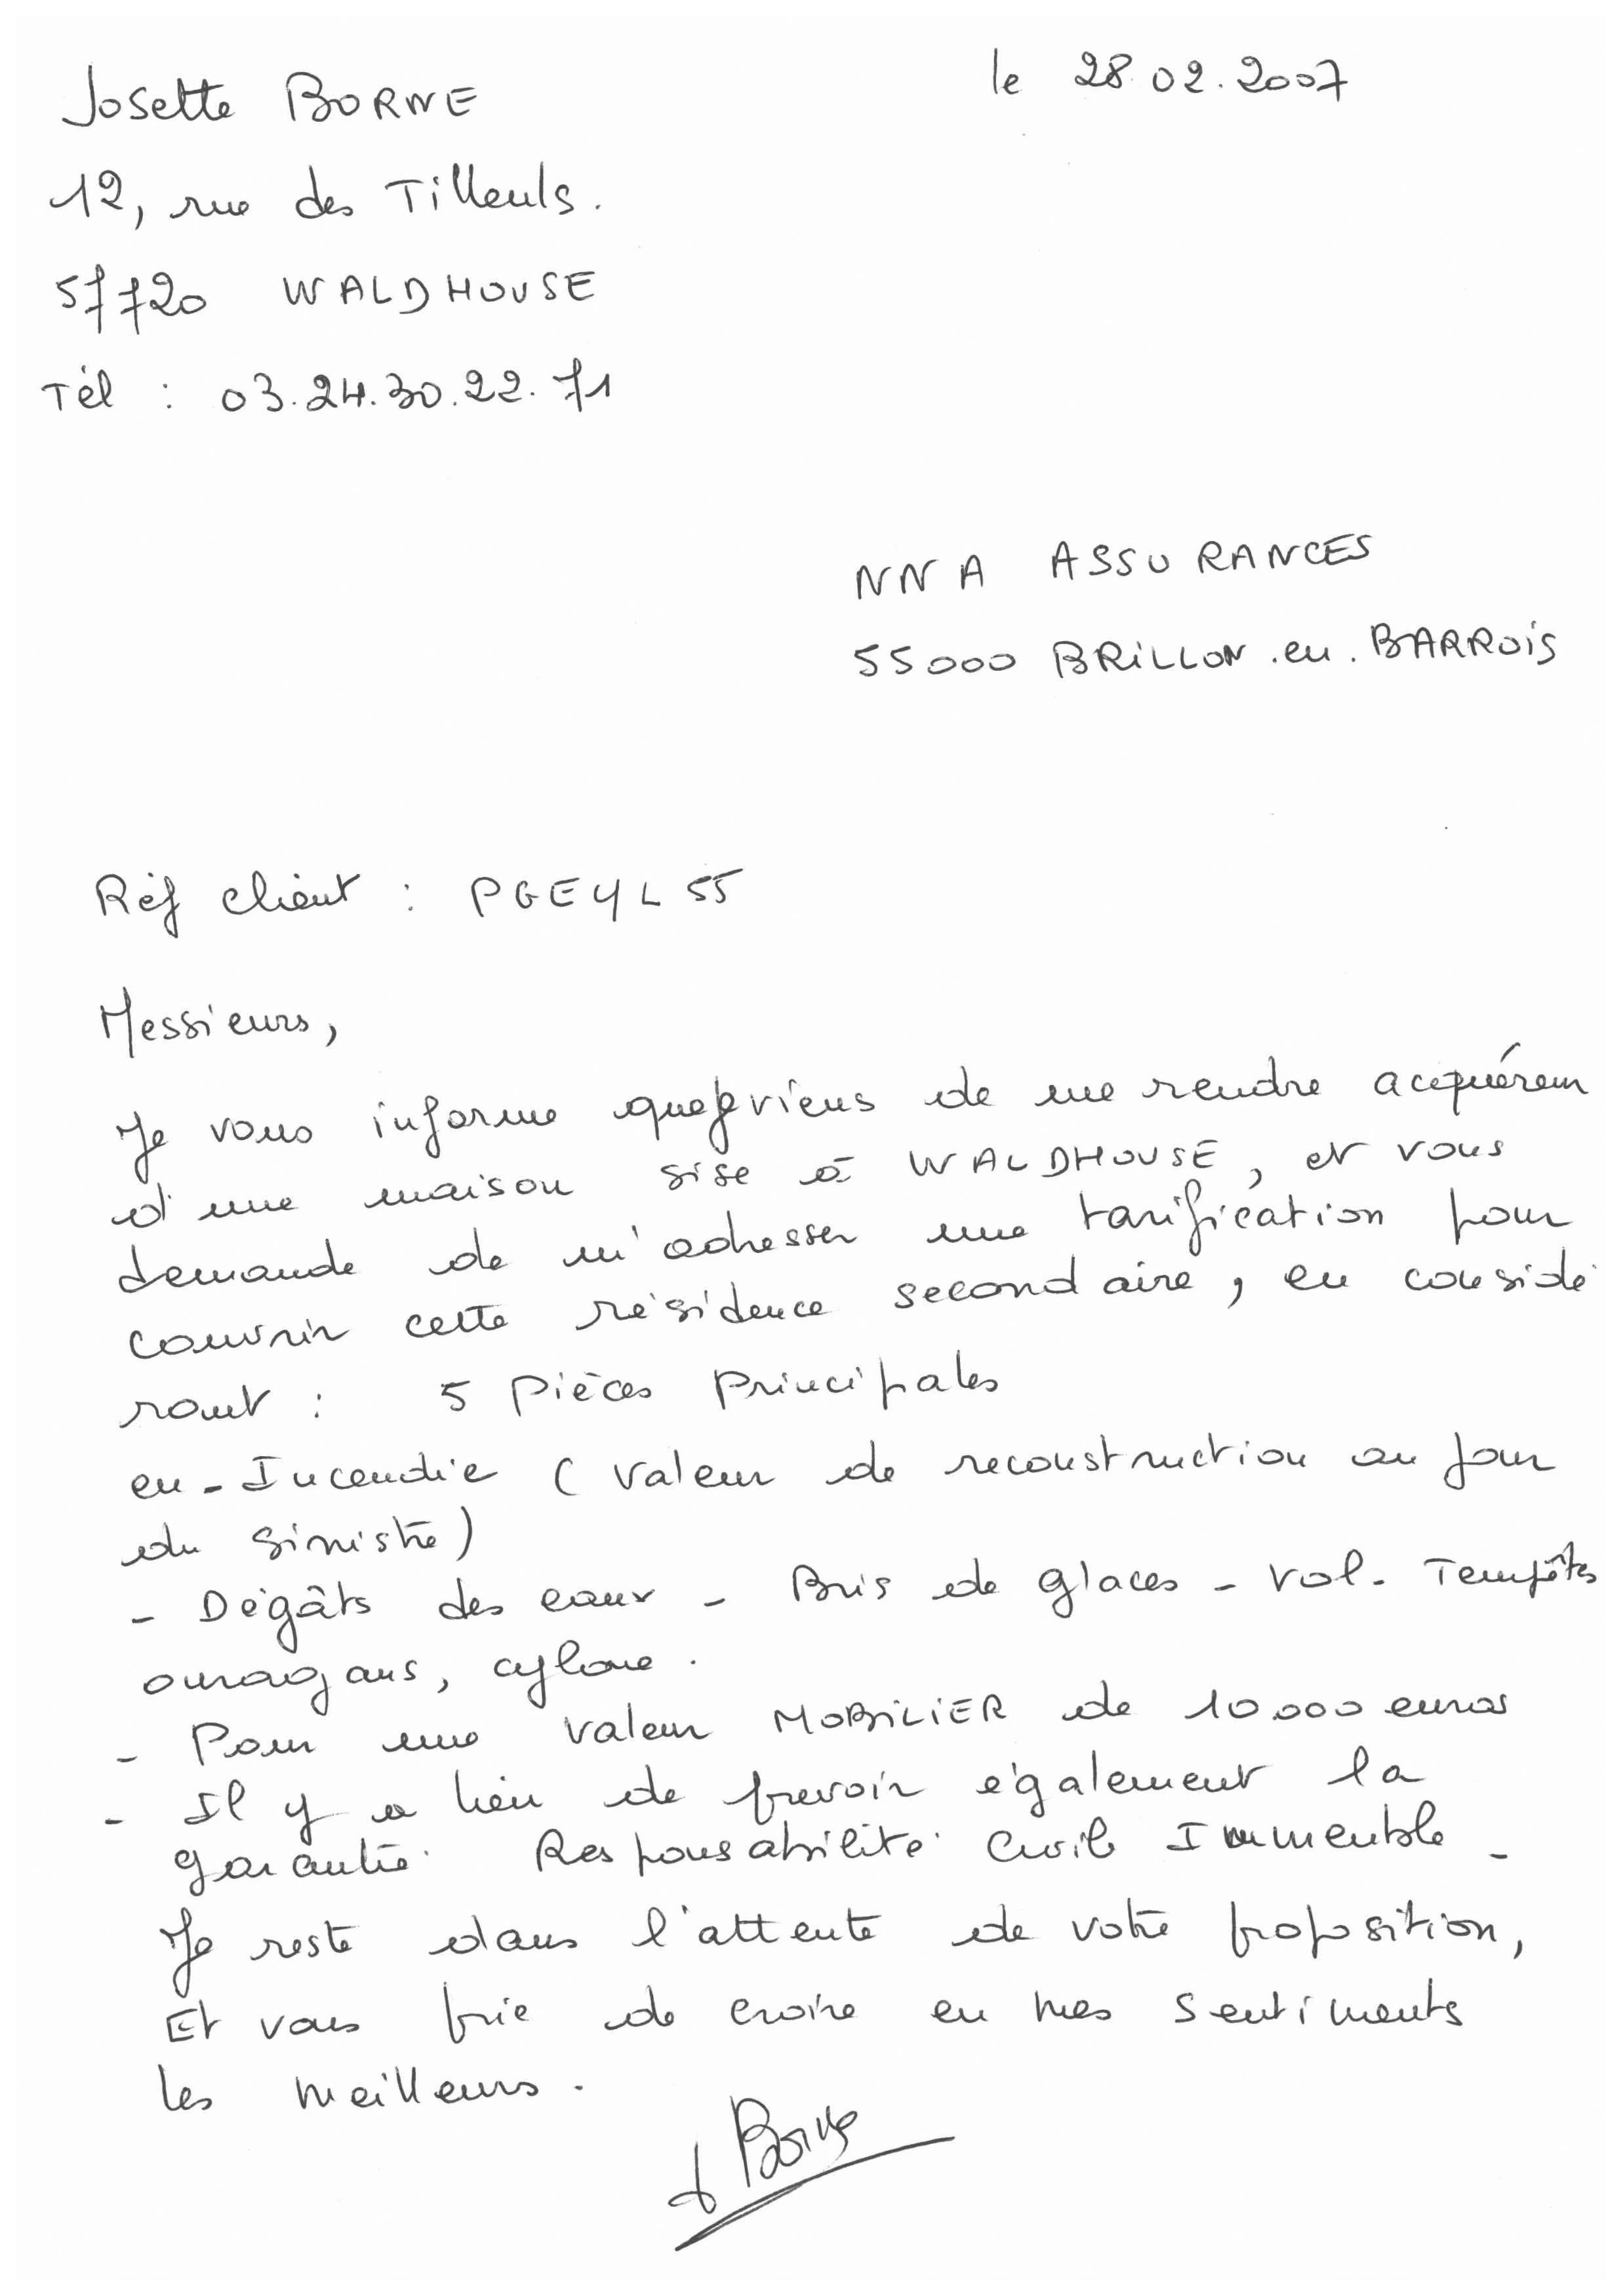 Josette BORNE
le 28.02.2007
12, rue des Tilleuls.
57720 WALDHOUSE
Tél : 03.24.30.22.71
NNA ASSURANCES
55000 BRILLON.en.BARROIS
Réf client : PGEYL55
Messieurs,
Je vous informe que je viens de me rendre acquéreur
d'une maison sise à WALDHOUSE, et vous
demande de m'adresser une tarification pour
couvrir cette résidence secondaire, en considé
rant : 5 pièces principales
en - Incendie (valeur de reconstruction au jour
du sinistre)
- Dégâts des eaux - Bris de glaces - vol - Tempêtes
ouragans, cyclone.
- Pour une valeur MOBILIER de 10 000 euros
- Il y a lieu de prevoir également la
garantie Responsabilité Civile Immeuble -
Je reste dans l'attente de votre proposition,
Et vous prie de croire en mes sentiments
les meilleurs.
J Borne